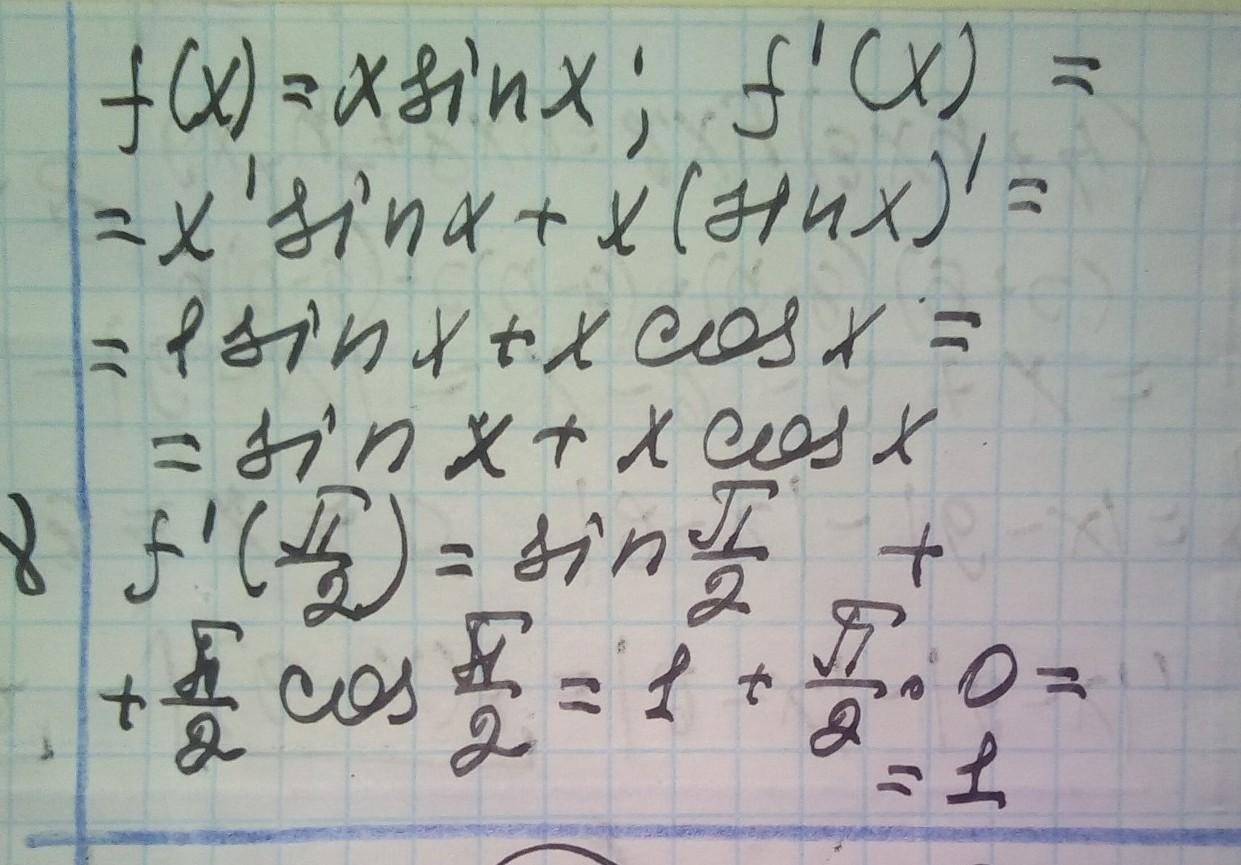 f(x) = x sin x; f'(x) =
= x' sin x + x (sin x)' =
= 1 sin x + x cos x =
= sin x + x cos x
f'(π/2) = sin π/2 +
+ π/2 cos π/2 = 1 + π/2 · 0 =
= 1